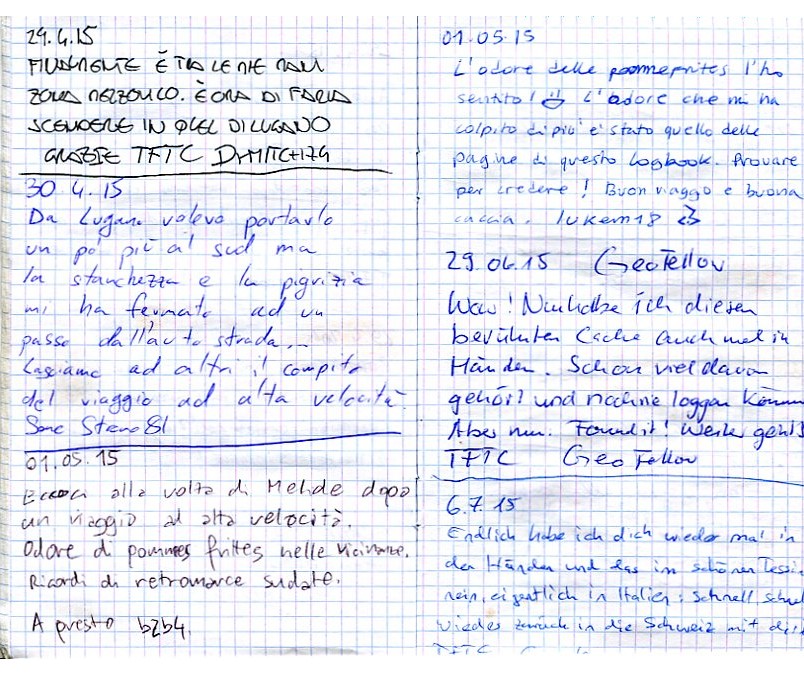 29.4.15
FINALMENTE È TRA LE MIE MANI
ZONA MEZZOVICO. È ORA DI FARLA
SCENDERE IN QUEL DI LUGANO
GRAZIE TFTC
30 4.15
Da Lugano volevo portarlo
un po' più a sud ma
la stanchezza e la pigrizia
mi ha fermato ad un
passo dall'auto strada...
Lasciamo ad altri il compito
del viaggio ad alta velocità.
Steno81
01.05.15
Eccoci alla volta di Melide dopo
un viaggio ad alta velocità.
Odore di pommes frittes nelle vicinanze.
Ricordi di retromarce sudate.
A presto bzb4.
01.05.15
L'odore delle pommefrites l'ho
sentito! L'odore che mi ha
colpito di più è stato quello delle
pagine di questo logbook. Provare
per credere! Buon viaggo e buona
caccia. lukem18
29.06.15 GeoFellow
Wow! Nun habe ich diesen
berühmten Cache auch mal in
Händen. Schon viel davon
gehört und noch nie loggen können
Aber nun. Found it! Weiter geht's
TFTC GeoFellow
6.7.15
Endlich habe ich dich wieder mal in
den Händen und das im schönen Tessin
nein, eigentlich in Italien; schnell, schnell
wieder zurück in die Schweiz mit dir
TFTC